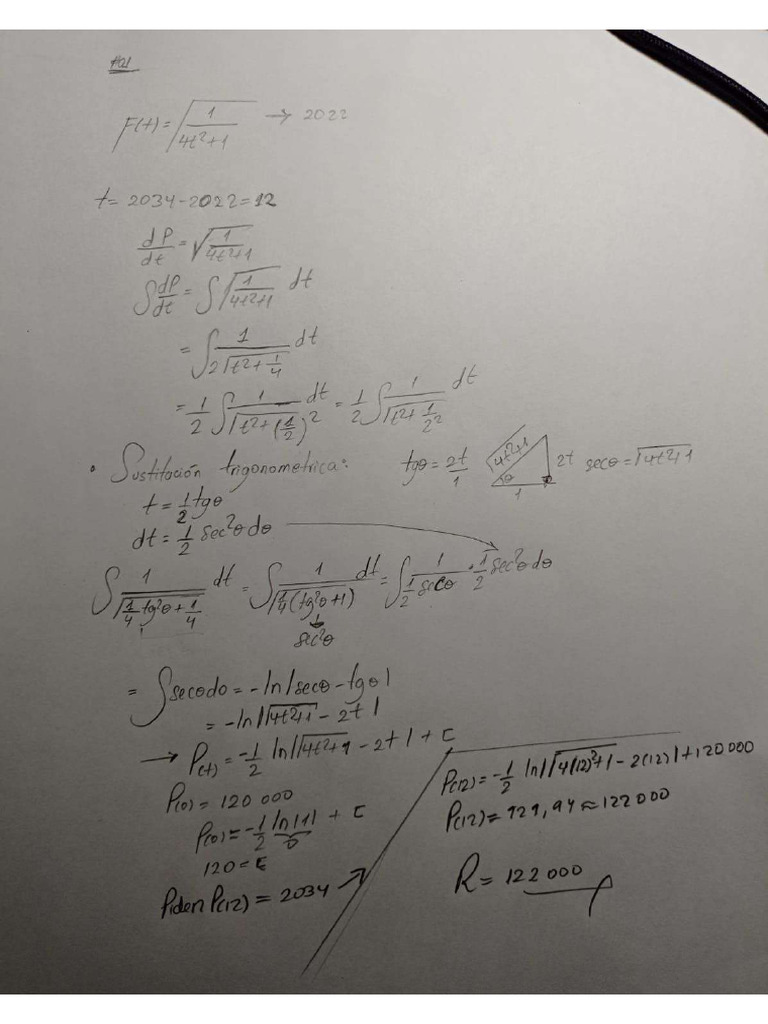 #01
F(t) = √(1/(4t²+1)) → 2022
t = 2034 - 2022 = 12
dP/dt = √(1/(4t²+1))
∫ dP/dt = ∫ √(1/(4t²+1)) dt
= ∫ 1/(2√(t² + 1/4)) dt
= 1/2 ∫ 1/√(t² + (1/2)²) dt = 1/2 ∫ 1/√(t² + 1/2²) dt
• Sustitución trigonometrica: tgθ = 2t/1 √4t²+1 2t θ 1 secθ = √4t²+1
t = 1/2 tgθ
dt = 1/2 sec²θ dθ
∫ 1/√(1/4 tg²θ + 1/4) dt = ∫ 1/√(1/4 (tg²θ + 1)) dt = ∫ 1/(1/2 secθ) · 1/2 sec²θ dθ
sec²θ
= ∫ secθ dθ = -ln|secθ - tgθ|
= -ln|√4t²+1 - 2t|
→ P(t) = -1/2 ln|√4t²+1 - 2t| + C
P(0) = 120 000
P(0) = -1/2 ln|1| + C
0
120 = C
Piden P(12) = 2034
P(12) = -1/2 ln|√4(12)²+1 - 2(12)| + 120 000
P(12) = 121,94 ≈ 122 000
R = 122 000